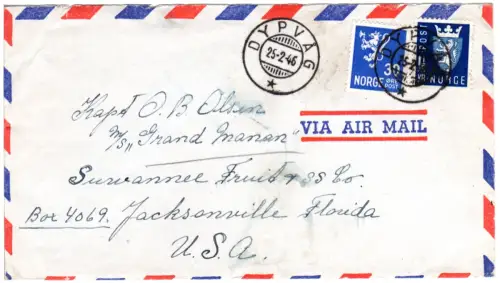 DYPVÅG
25-2-46
30
ØRE
NORGE
POST
POST
NORGE
Kapt O. B. Olsen
M/S "Grand Manan"
VIA AIR MAIL
Suwannee Fruit & SS Co.
Box 4069. Jacksonville Florida
U.S.A.